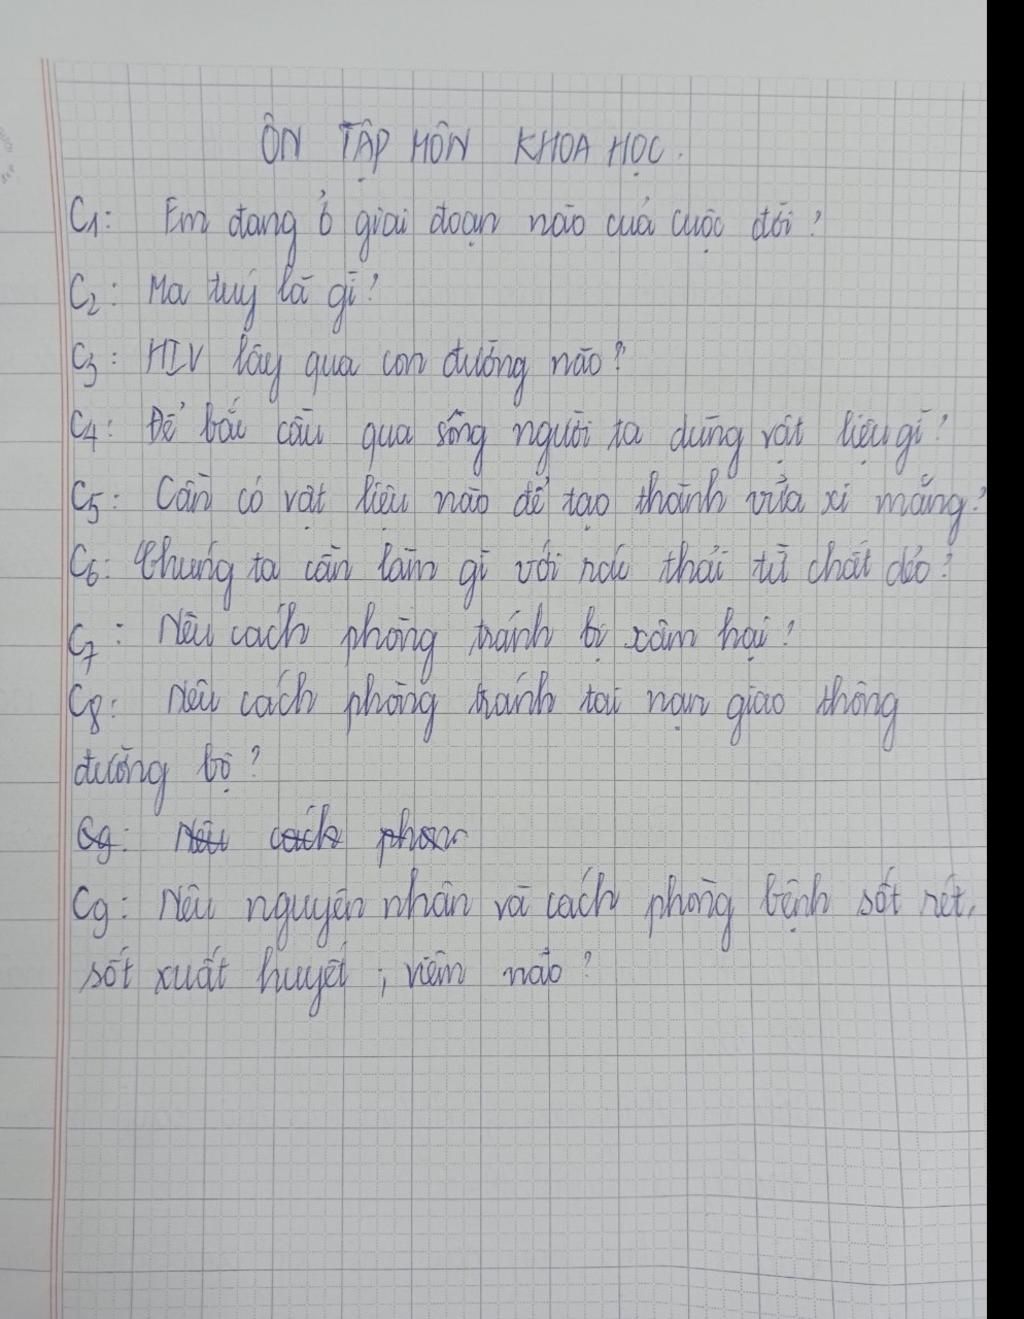 ÔN TẬP MÔN KHOA HỌC.
C1: Em đang ở giai đoạn nào của cuộc đời?
C2: Ma tuý là gì?
C3: HIV lây qua con đường nào?
C4: Để bắc cầu qua sông người ta dùng vật liệu gì?
C5: Cần có vật liệu nào để tạo thành vữa xi măng?
C6: Chúng ta cần làm gì với rác thải từ chất dẻo?
C7: Nêu cách phòng tránh bị xâm hại?
C8: Nêu cách phòng tránh tai nạn giao thông
đường bộ?
C9: Nêu cách phòn
C9: Nêu nguyên nhân và cách phòng bệnh sốt rét,
sốt xuất huyết, viêm não?